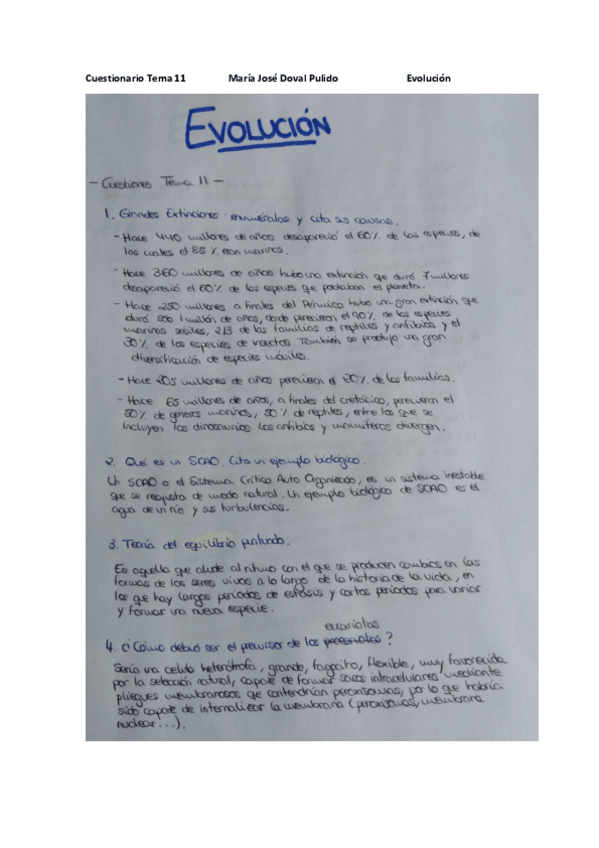 Cuestionario Tema 11 María José Doval Pulido Evolución
EVOLUCIÓN
- Cuestiones Tema 11 -
1. Grandes Extinciones: enuméralas y cita sus causas.
- Hace 440 millones de años desapareció el 60% de las especies, de
las cuales el 85% eran marinos.
- Hace 360 millones de años hubo una extinción que duró 7 millones
desapareció el 60% de las especies que poblaban el planeta.
- Hace 250 millones a finales del Pérmico hubo una gran extinción que
duró 1 millón de años, donde perecieron el 90% de las especies
marinas sésiles, 2/3 de las familias de reptiles y anfibios y el
30% de las especies de insectos. También se produjo una gran
diversificación de especies móviles.
- Hace 205 millones de años perecieron el 20% de las familias.
- Hace 65 millones de años, a finales del cretácico, perecieron el
50% de géneros marinos, 50% de reptiles, entre los que se
incluyen los dinosaurios. Los anfibios y mamíferos divergen.
2. Qué es un SCAO. Cita un ejemplo biológico.
Un SCAO o el Sistema Crítico Auto Organizado, es un sistema inestable
que se reajusta de modo natural. Un ejemplo biológico de SCAO es el
agua de un río y sus turbulencias.
3. Teoría del equilibrio puntuado.
Es aquella que alude al ritmo con el que se producen cambios en las
formas de los seres vivos a lo largo de la historia de la vida, en
los que hay largos periodos de estasis y cortos periodos para variar
y formar una nueva especie.
eucariotas
4. ¿Cómo debió ser el precursor de los procariotas?
Sería una célula heterótrofa, grande, fagocito, flexible, muy favorecida
por la selección natural, capaz de formar sacos intracelulares mediante
pliegues membranosos que contendrían peroxisomas, por lo que habría
sido capaz de internalizar la membrana (peroxisomas, membrana
nuclear...).